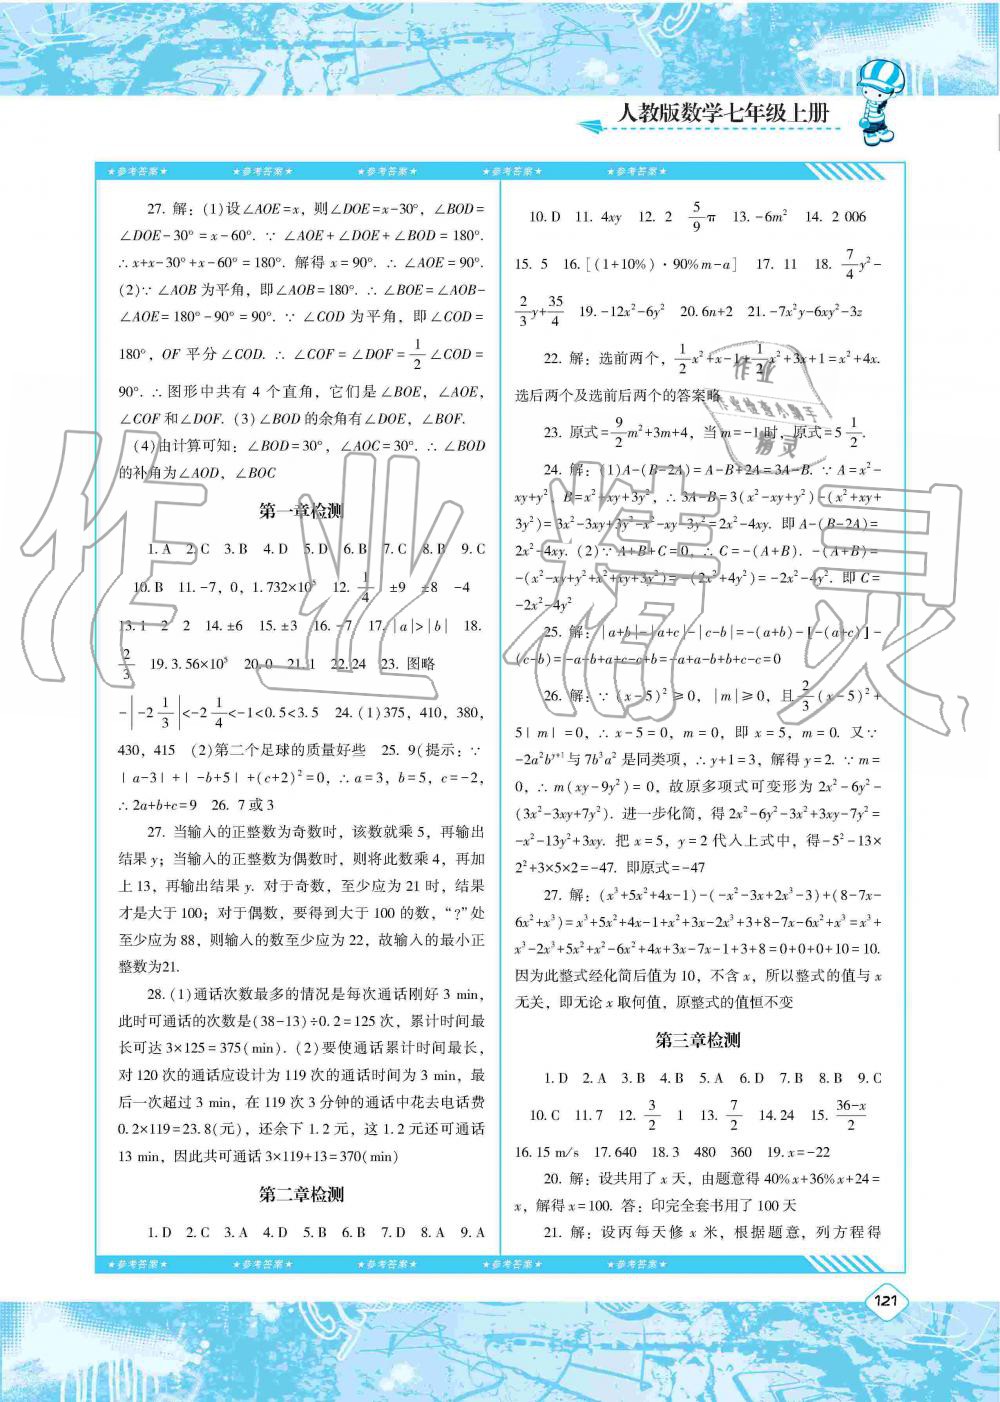 人教版数学七年级上册
★参考答案★ ★参考答案★ ★参考答案★ ★参考答案★ ★参考答案★
27. 解：(1)设∠AOE=x，则∠DOE=x-30°，∠BOD=
∠DOE-30°=x-60°. ∵ ∠AOE+∠DOE+∠BOD=180°.
∴x+x-30°+x-60°=180°. 解得x=90°. ∴ ∠AOE=90°.
(2)∵ ∠AOB为平角，即∠AOB=180°. ∴ ∠BOE=∠AOB-
∠AOE=180°-90°=90°. ∵ ∠COD为平角，即∠COD=
180°，OF平分∠COD. ∴ ∠COF=∠DOF=1/2∠COD=
90°. ∴图形中共有4个直角，它们是∠BOE，∠AOE，
∠COF和∠DOF. (3)∠BOD的余角有∠DOE，∠BOF.
(4)由计算可知：∠BOD=30°，∠AOC=30°. ∴ ∠BOD
的补角为∠AOD，∠BOC
第一章检测
1. A 2. C 3. B 4. D 5. D 6. B 7. C 8. B 9. C
10. B 11. -7，0，1.732×10⁵ 12. 1/4 ±9 ±8 -4
13. 1 2 2 14. ±6 15. ±3 16. -7 17. |a|>|b| 18.
2/3 19. 3.56×10⁵ 20. 0 21. 1 22. 24 23. 图略
-|-2 1/3|<-2 1/4<-1<0.5<3.5 24. (1)375，410，380，
430，415 (2)第二个足球的质量好些 25. 9(提示：∵
|a-3|+|-b+5|+(c+2)²=0，∴a=3，b=5，c=-2，
∴2a+b+c=9 26. 7或3
27. 当输入的正整数为奇数时，该数就乘5，再输出
结果y；当输入的正整数为偶数时，则将此数乘4，再加
上13，再输出结果y. 对于奇数，至少应为21时，结果
才是大于100；对于偶数，要得到大于100的数，“?”处
至少应为88，则输入的数至少应为22，故输入的最小正
整数为21.
28. (1)通话次数最多的情况是每次通话刚好3 min，
此时可通话的次数是(38-13)÷0.2=125次，累计时间最
长可达3×125=375(min). (2)要使通话累计时间最长，
对120次的通话应设计为119次的通话时间为3 min，最
后一次超过3 min，在119次3分钟的通话中花去电话费
0.2×119=23.8(元)，还余下1.2元，这1.2元还可通话
13 min，因此共可通话3×119+13=370(min)
第二章检测
1. D 2. C 3. A 4. D 5. B 6. B 7. D 8. A 9. A
10. D 11. 4xy 12. 2 5/9π 13. -6m² 14. 2 006
15. 5 16. [(1+10%)·90%m-a] 17. 11 18. 7/4y²-
2/3y+35/4 19. -12x²-6y² 20. 6n+2 21. -7x²y-6xy²-3z
22. 解：选前两个，1/2x²+x-1+1/2x²+3x+1=x²+4x.
选后两个及选前后两个的答案略
23. 原式=9/2m²+3m+4，当m=-1时，原式=5 1/2.
24. 解：(1)A-(B-2A)=A-B+2A=3A-B. ∵A=x²-
xy+y²，B=x²+xy+3y²，∴3A-B=3(x²-xy+y²)-(x²+xy+
3y²)=3x²-3xy+3y²-x²-xy-3y²=2x²-4xy. 即A-(B-2A)=
2x²-4xy. (2)∵A+B+C=0，∴C=-(A+B). -(A+B)=
-(x²-xy+y²+x²+xy+3y²)=-(2x²+4y²)=-2x²-4y². 即C=
-2x²-4y²
25. 解：|a+b|-|a+c|-|c-b|=-(a+b)-[-(a+c)]-
(c-b)=-a-b+a+c-c+b=-a+a-b+b+c-c=0
26. 解：∵(x-5)²≥0，|m|≥0，且2/3(x-5)²+
5|m|=0，∴x-5=0，m=0，即x=5，m=0. 又∵
-2a²bʸ⁺¹与7b³a²是同类项，∴y+1=3，解得y=2. ∵m=
0，∴m(xy-9y²)=0，故原多项式可变形为2x²-6y²-
(3x²-3xy+7y²). 进一步化简，得2x²-6y²-3x²+3xy-7y²=
-x²-13y²+3xy. 把x=5，y=2代入上式中，得-5²-13×
2²+3×5×2=-47. 即原式=-47
27. 解：(x³+5x²+4x-1)-(-x²-3x+2x³-3)+(8-7x-
6x²+x³)=x³+5x²+4x-1+x²+3x-2x³+3+8-7x-6x²+x³=x³+
x³-2x³+5x²+x²-6x²+4x+3x-7x-1+3+8=0+0+0+10=10.
因为此整式经化简后值为10，不含x，所以整式的值与x
无关，即无论x取何值，原整式的值恒不变
第三章检测
1. D 2. A 3. B 4. B 5. A 6. D 7. B 8. B 9. C
10. C 11. 7 12. 3/2 1 13. 7/2 14. 24 15. (36-x)/2
16. 15 m/s 17. 640 18. 3 480 360 19. x=-22
20. 解：设共用了x天，由题意得40%x+36%x+24=
x，解得x=100. 答：印完全套书用了100天
21. 解：设丙每天修x米，根据题意，列方程得
★参考答案★ ★参考答案★ ★参考答案★ ★参考答案★ ★参考答案★
121
作业精灵
作业
作业检查小助手
精灵